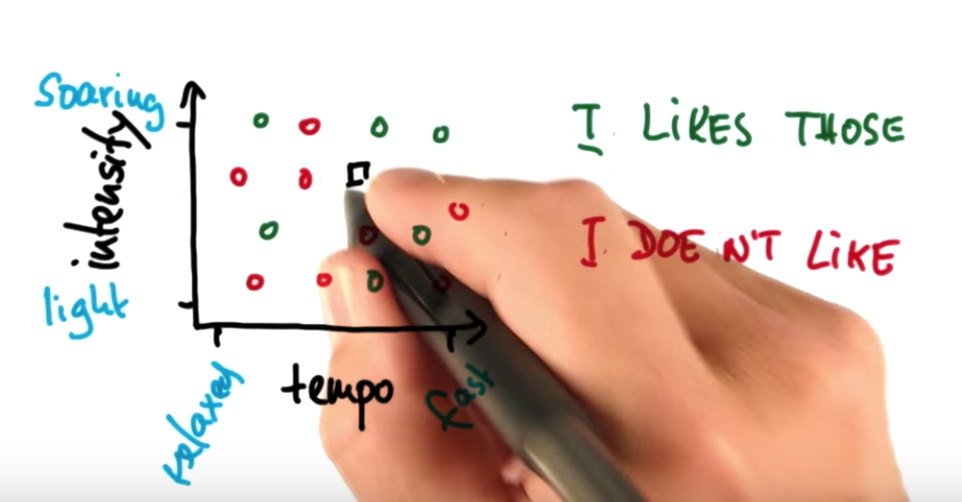 Soaring
intensity
light
relaxed
tempo
fast
I LIKES THOSE
I DOE N'T LIKE